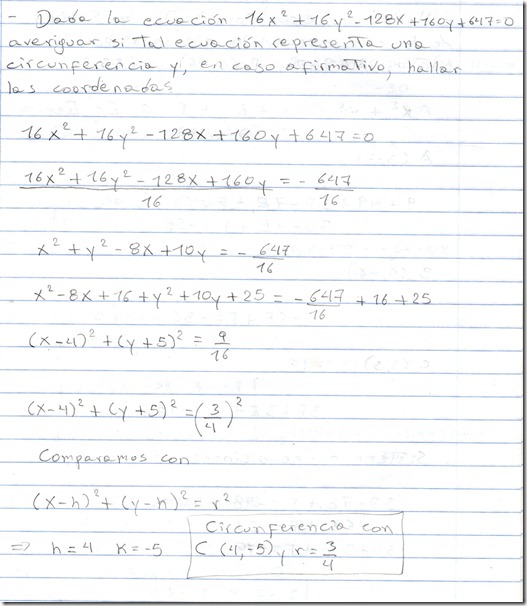 - Dada la ecuación 16x² + 16y² - 128x + 160y + 647 = 0
averiguar si tal ecuación representa una
circunferencia y, en caso afirmativo, hallar
las coordenadas
16x² + 16y² - 128x + 160y + 647 = 0
(16x² + 16y² - 128x + 160y)/16 = - 647/16
x² + y² - 8x + 10y = - 647/16
x² - 8x + 16 + y² + 10y + 25 = - 647/16 + 16 + 25
(x-4)² + (y+5)² = 9/16
(x-4)² + (y+5)² = (3/4)²
Comparamos con
(x-h)² + (y-k)² = r²
Circunferencia con
⇒ h = 4 k = -5 C (4,-5) y r = 3/4